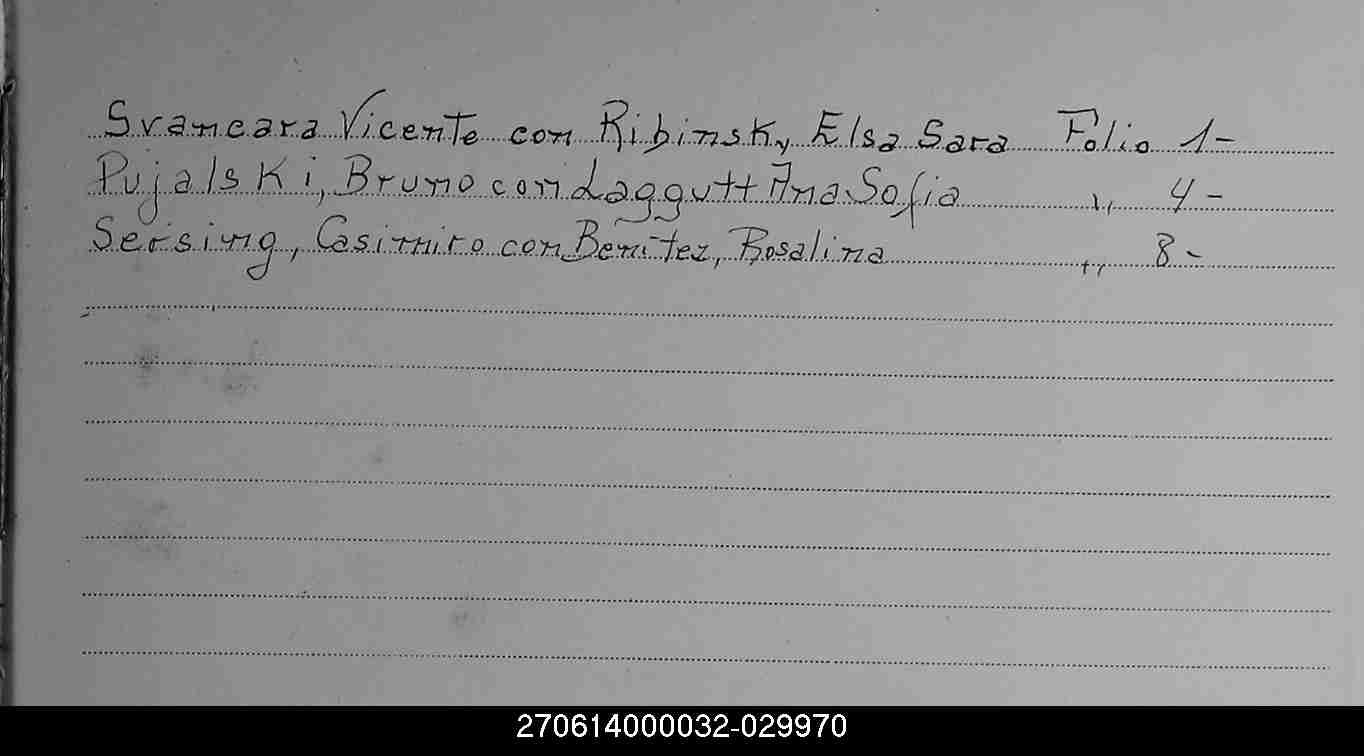 Svancara Vicente con Ribinsky, Elsa Sara Folio 1-
Pujalski, Bruno con Laggutt Ana Sofia ,, 4-
Sersing, Casimiro con Benitez, Rosalina ,, 8-
270614000032-029970